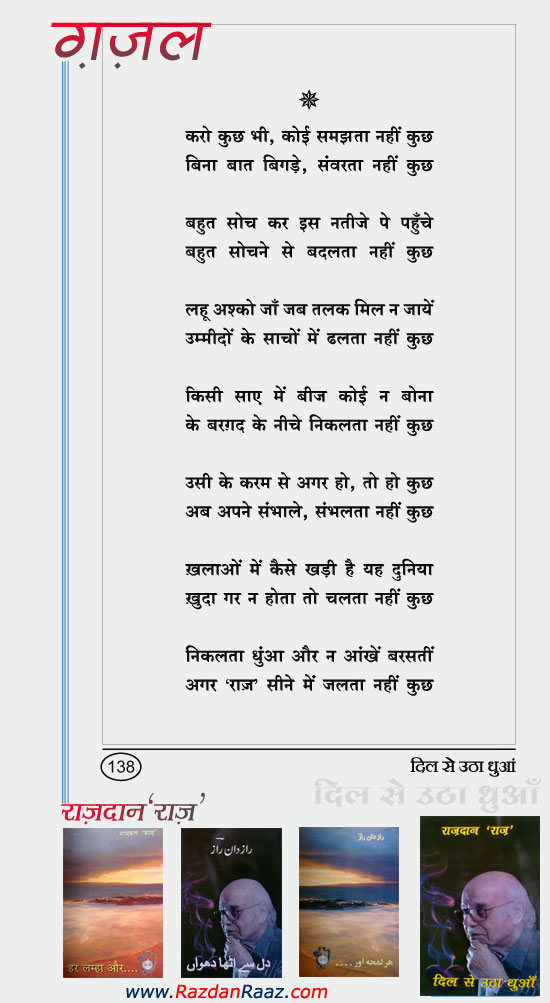 ग़ज़ल
करो कुछ भी, कोई समझता नहीं कुछ
बिना बात बिगड़े, संवरता नहीं कुछ
बहुत सोच कर इस नतीजे पे पहुँचे
बहुत सोचने से बदलता नहीं कुछ
लहू अश्को जाँ जब तलक मिल न जायें
उम्मीदों के साचों में ढलता नहीं कुछ
किसी साए में बीज कोई न बोना
के बरग़द के नीचे निकलता नहीं कुछ
उसी के करम से अगर हो, तो हो कुछ
अब अपने संभाले, संभलता नहीं कुछ
ख़लाओं में कैसे खड़ी है यह दुनिया
ख़ुदा गर न होता तो चलता नहीं कुछ
निकलता धुंआ और न आंखें बरसतीं
अगर ‘राज़’ सीने में जलता नहीं कुछ
138
दिल से उठा धुआं
दिल से उठा धुआँ
राज़दान ‘राज़’
राज़दान ‘राज़’
हर लम्हा और....
رازدان رازؔ
دل سے اٹھا دھواں
رازدان راز
ہر لمحہ اور ....
राज़दान ‘राज़’
दिल से उठा धुआँ
www.RazdanRaaz.com